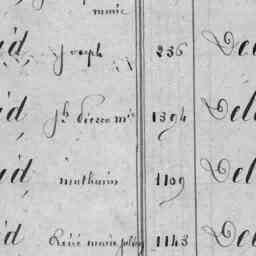 marie
id Joseph 236 Del
id Jh Pierre Mie 1394 Del
id mathurin 1109 Del
id René marie julien 1143 Del